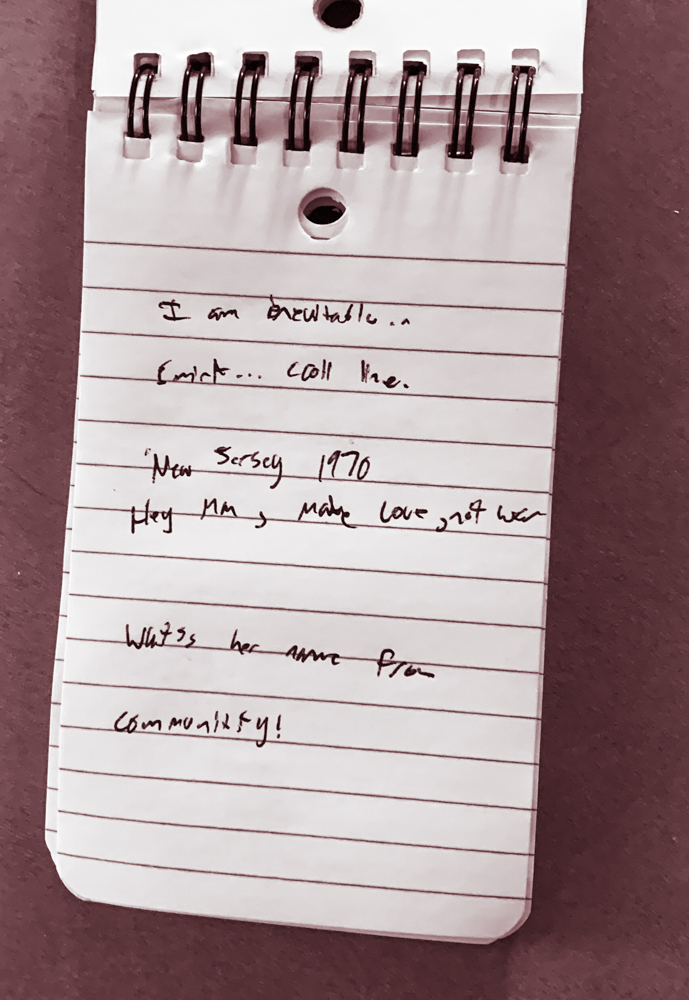 I am inevitable..
... call me.
New Jersey 1970
Hey Man, make love, not war
What's her name from
community!